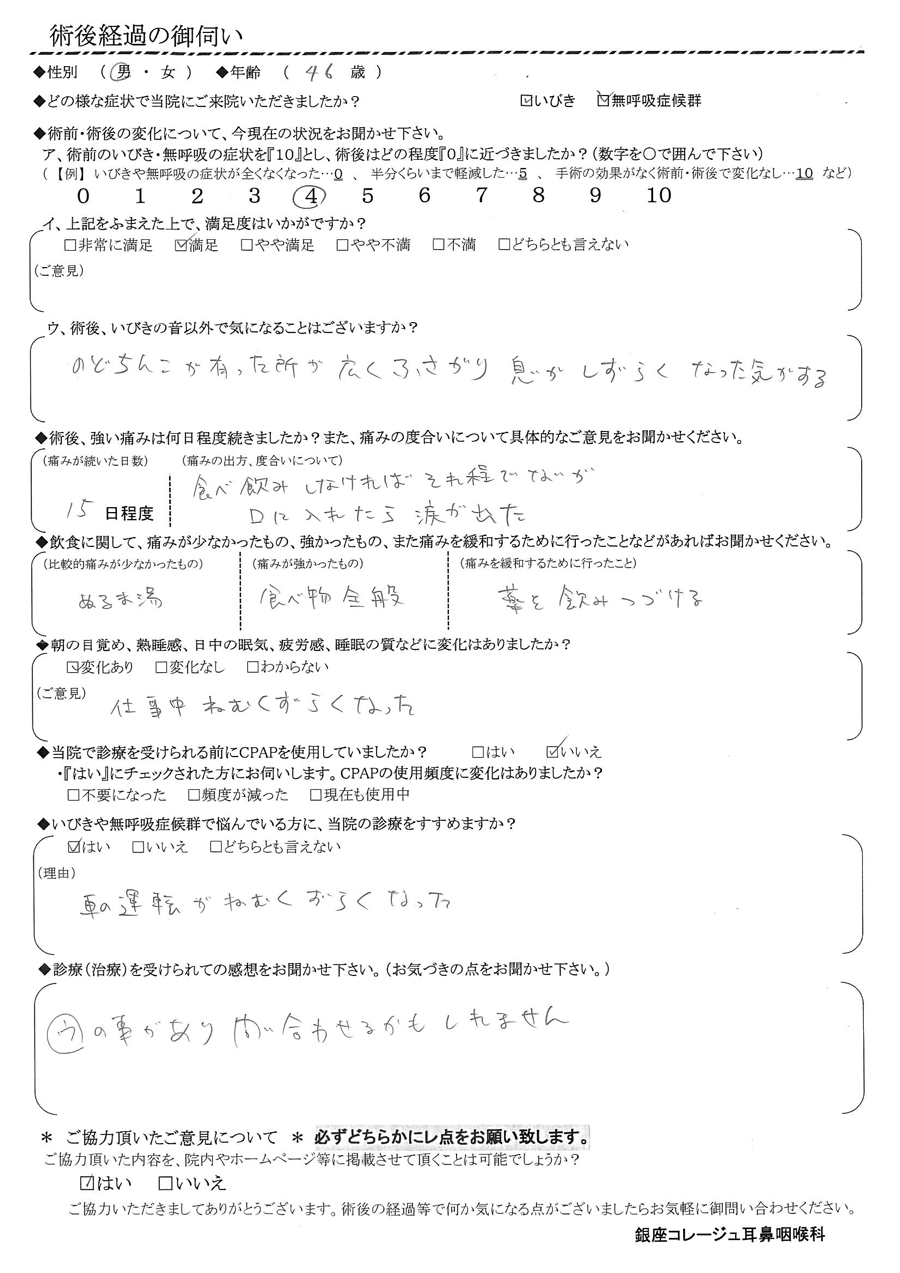 術後経過の御伺い
◆性別 ( 男 ・ 女 ) ◆年齢 ( 46 歳 )
◆どの様な症状で当院にご来院いただきましたか? ☑いびき ☑無呼吸症候群
◆術前・術後の変化について、今現在の状況をお聞かせ下さい。
ア、術前のいびき・無呼吸の症状を『10』とし、術後はどの程度『0』に近づきましたか?(数字を〇で囲んで下さい)
(【例】いびきや無呼吸の症状が全くなくなった…0 、 半分くらいまで軽減した…5 、 手術の効果がなく術前・術後で変化なし…10 など)
0 1 2 3 4 5 6 7 8 9 10
イ、上記をふまえた上で、満足度はいかがですか?
□非常に満足 ☑満足 □やや満足 □やや不満 □不満 □どちらとも言えない
(ご意見)
ウ、術後、いびきの音以外で気になることはございますか?
のどちんこが有った所が広くふさがり 息がしずらくなった気がする
◆術後、強い痛みは何日程度続きましたか?また、痛みの度合いについて具体的なご意見をお聞かせください。
(痛みが続いた日数) (痛みの出方、度合いについて)
食べ飲みしなければそれ程でないが
15 日程度 口に入れたら涙が出た
◆飲食に関して、痛みが少なかったもの、強かったもの、また痛みを緩和するために行ったことなどがあればお聞かせください。
(比較的痛みが少なかったもの) (痛みが強かったもの) (痛みを緩和するために行ったこと)
ぬるま湯 食べ物全般 薬を飲みつづける
◆朝の目覚め、熟睡感、日中の眠気、疲労感、睡眠の質などに変化はありましたか?
☑変化あり □変化なし □わからない
(ご意見)
仕事中ねむくずらくなった
◆当院で診療を受けられる前にCPAPを使用していましたか? □はい ☑いいえ
・『はい』にチェックされた方にお伺いします。CPAPの使用頻度に変化はありましたか?
□不要になった □頻度が減った □現在も使用中
◆いびきや無呼吸症候群で悩んでいる方に、当院の診療をすすめますか?
☑はい □いいえ □どちらとも言えない
(理由)
車の運転がねむくずらくなった
◆診療(治療)を受けられての感想をお聞かせ下さい。(お気づきの点をお聞かせ下さい。)
ウの事があり問い合わせるかもしれません
＊ ご協力頂いたご意見について ＊ 必ずどちらかにレ点をお願い致します。
ご協力頂いた内容を、院内やホームページ等に掲載させて頂くことは可能でしょうか?
☑はい □いいえ
ご協力いただきましてありがとうございます。術後の経過等で何か気になる点がございましたらお気軽に御問い合わせください。
銀座コレージュ耳鼻咽喉科